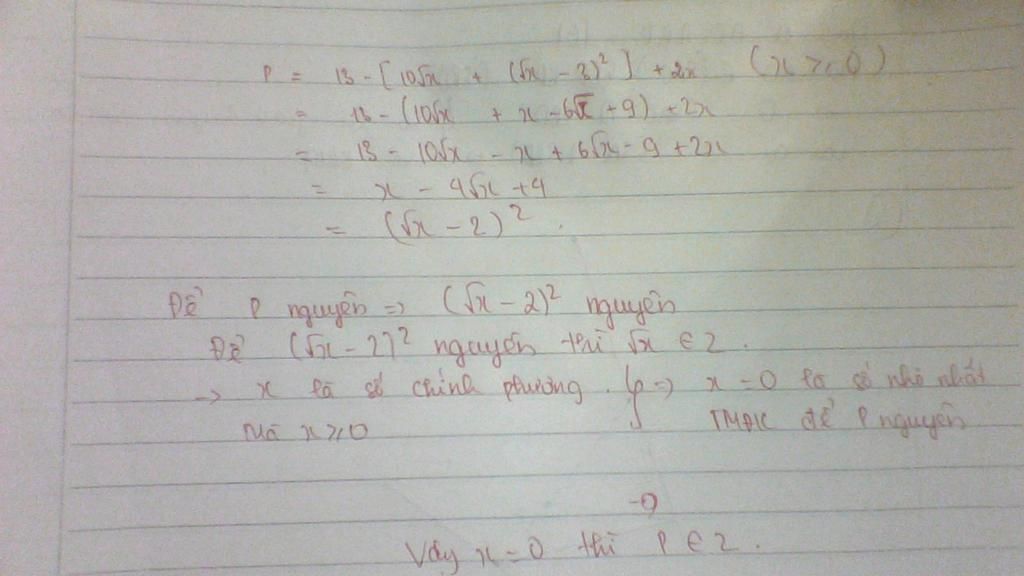 P = 13 - [10√x + (√x - 3)²] + 2x (x ≥ 0)
= 13 - (10√x + x - 6√x + 9) + 2x
= 13 - 10√x - x + 6√x - 9 + 2x
= x - 4√x + 4
= (√x - 2)².
Để P nguyên => (√x - 2)² nguyên
Để (√x - 2)² nguyên thì √x ∈ Z.
-> x là số chính phương. } => x = 0 là số nhỏ nhất
Mà x ≥ 0 TMĐK để P nguyên
Vậy x = 0 thì P ∈ Z.